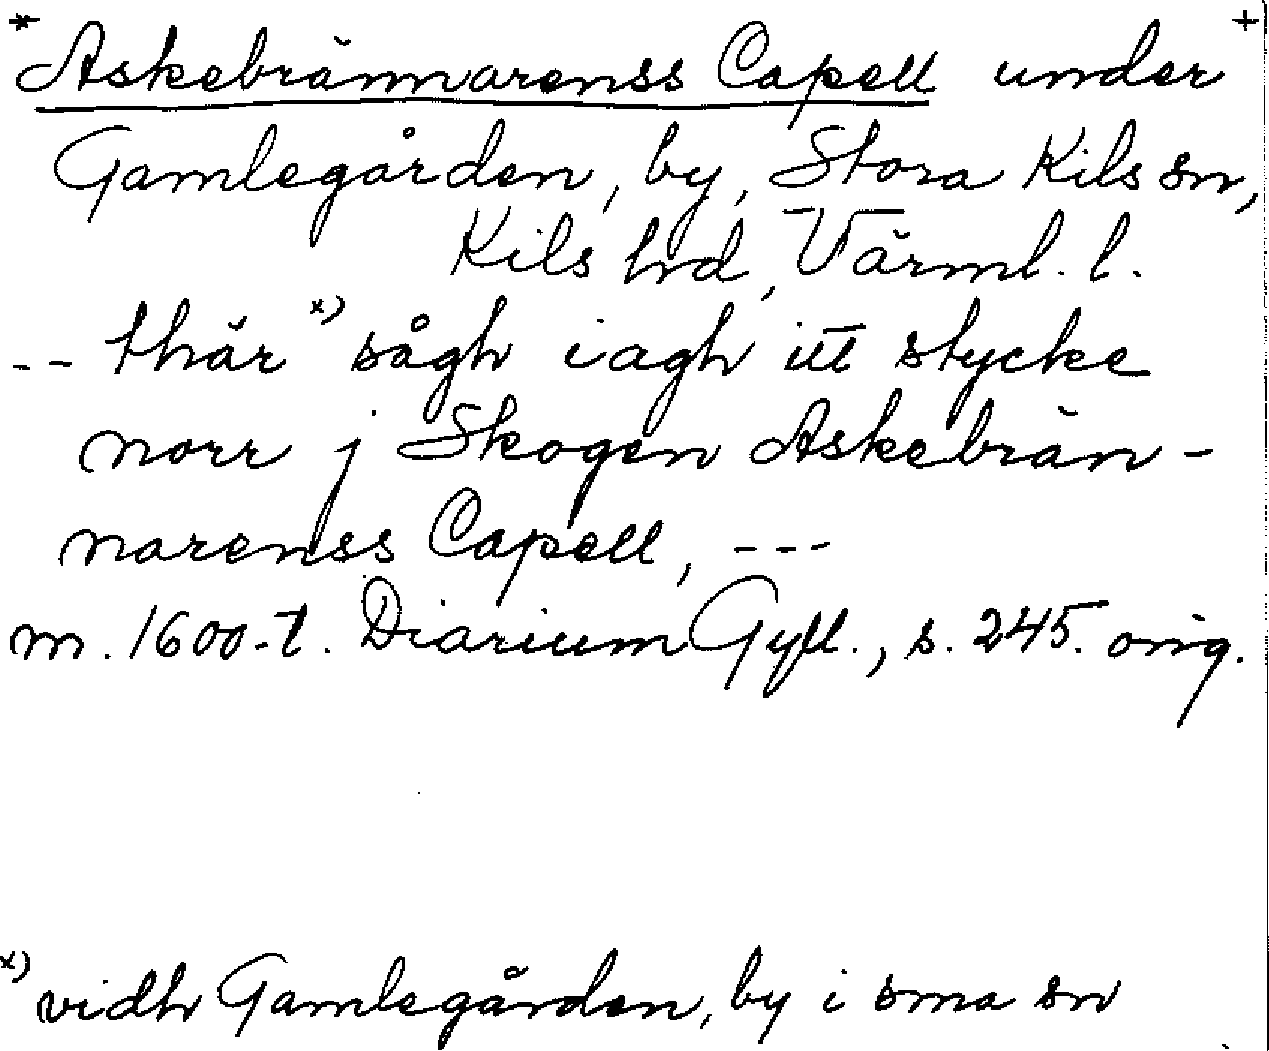 * Askebrännarenss Capell under +
Gamlegården, by, Stora Kils sn,
Kils hd, Värml. l.
-- thär x) sågh iagh itt stycke
norr j Skogen Askebrän-
narenss Capell, ---
m. 1600-t. Diarium Gyll., s. 245. orig.
x) vidh Gamlegården, by i sma sn